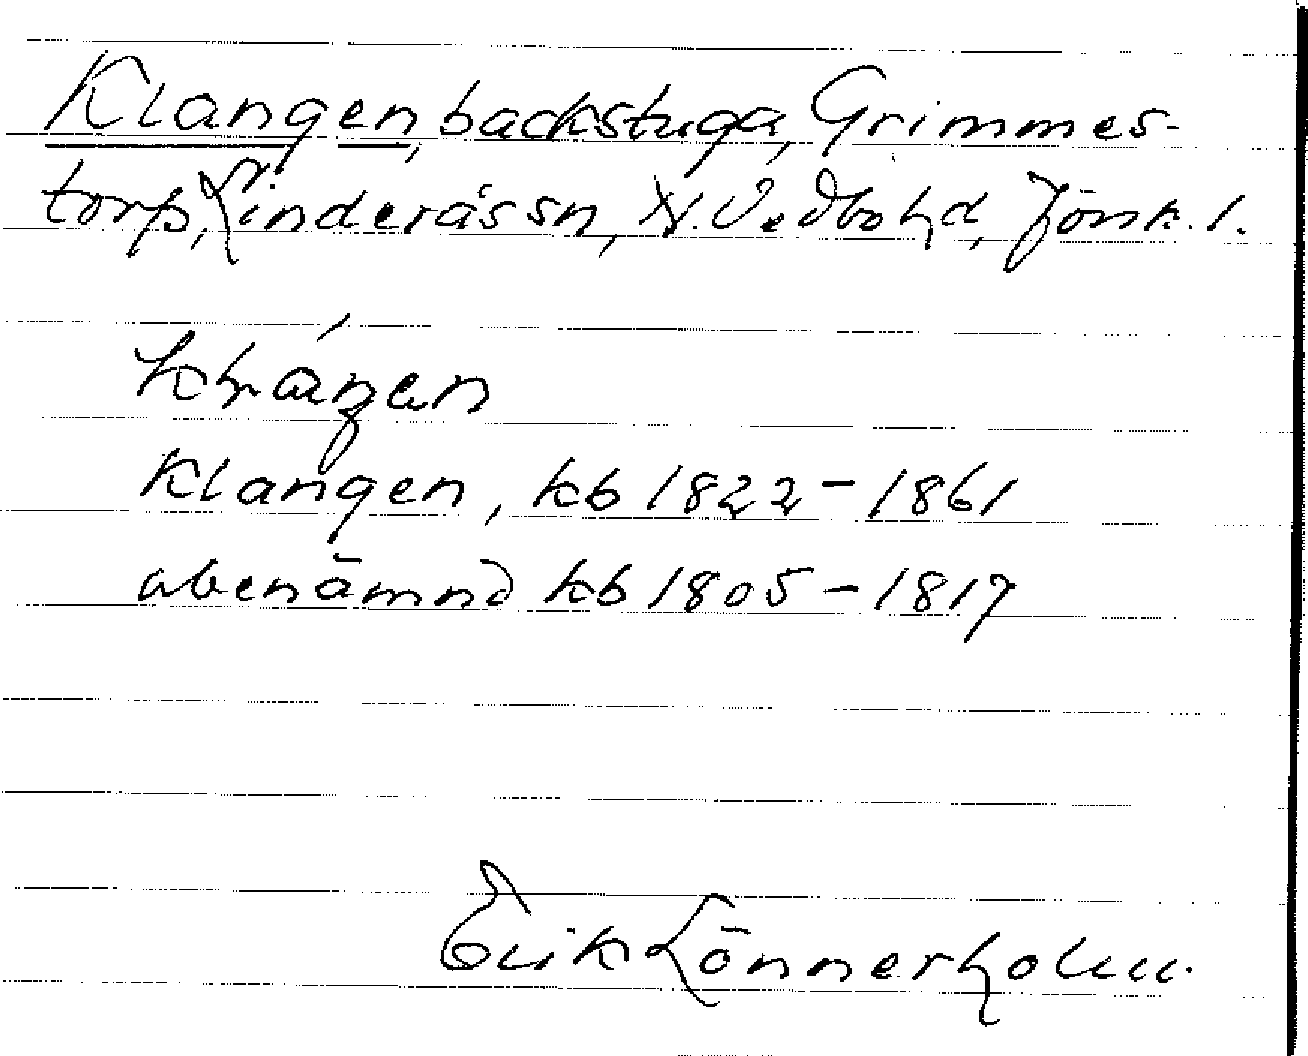 Klangen, backstuga, Grimmes-
torp, Linderås sn, N. Vedbo hd, Jönk. l.
Klangen, kb 1822-1861
obenämnd kb 1805-1817
Erik Lönnerholm.